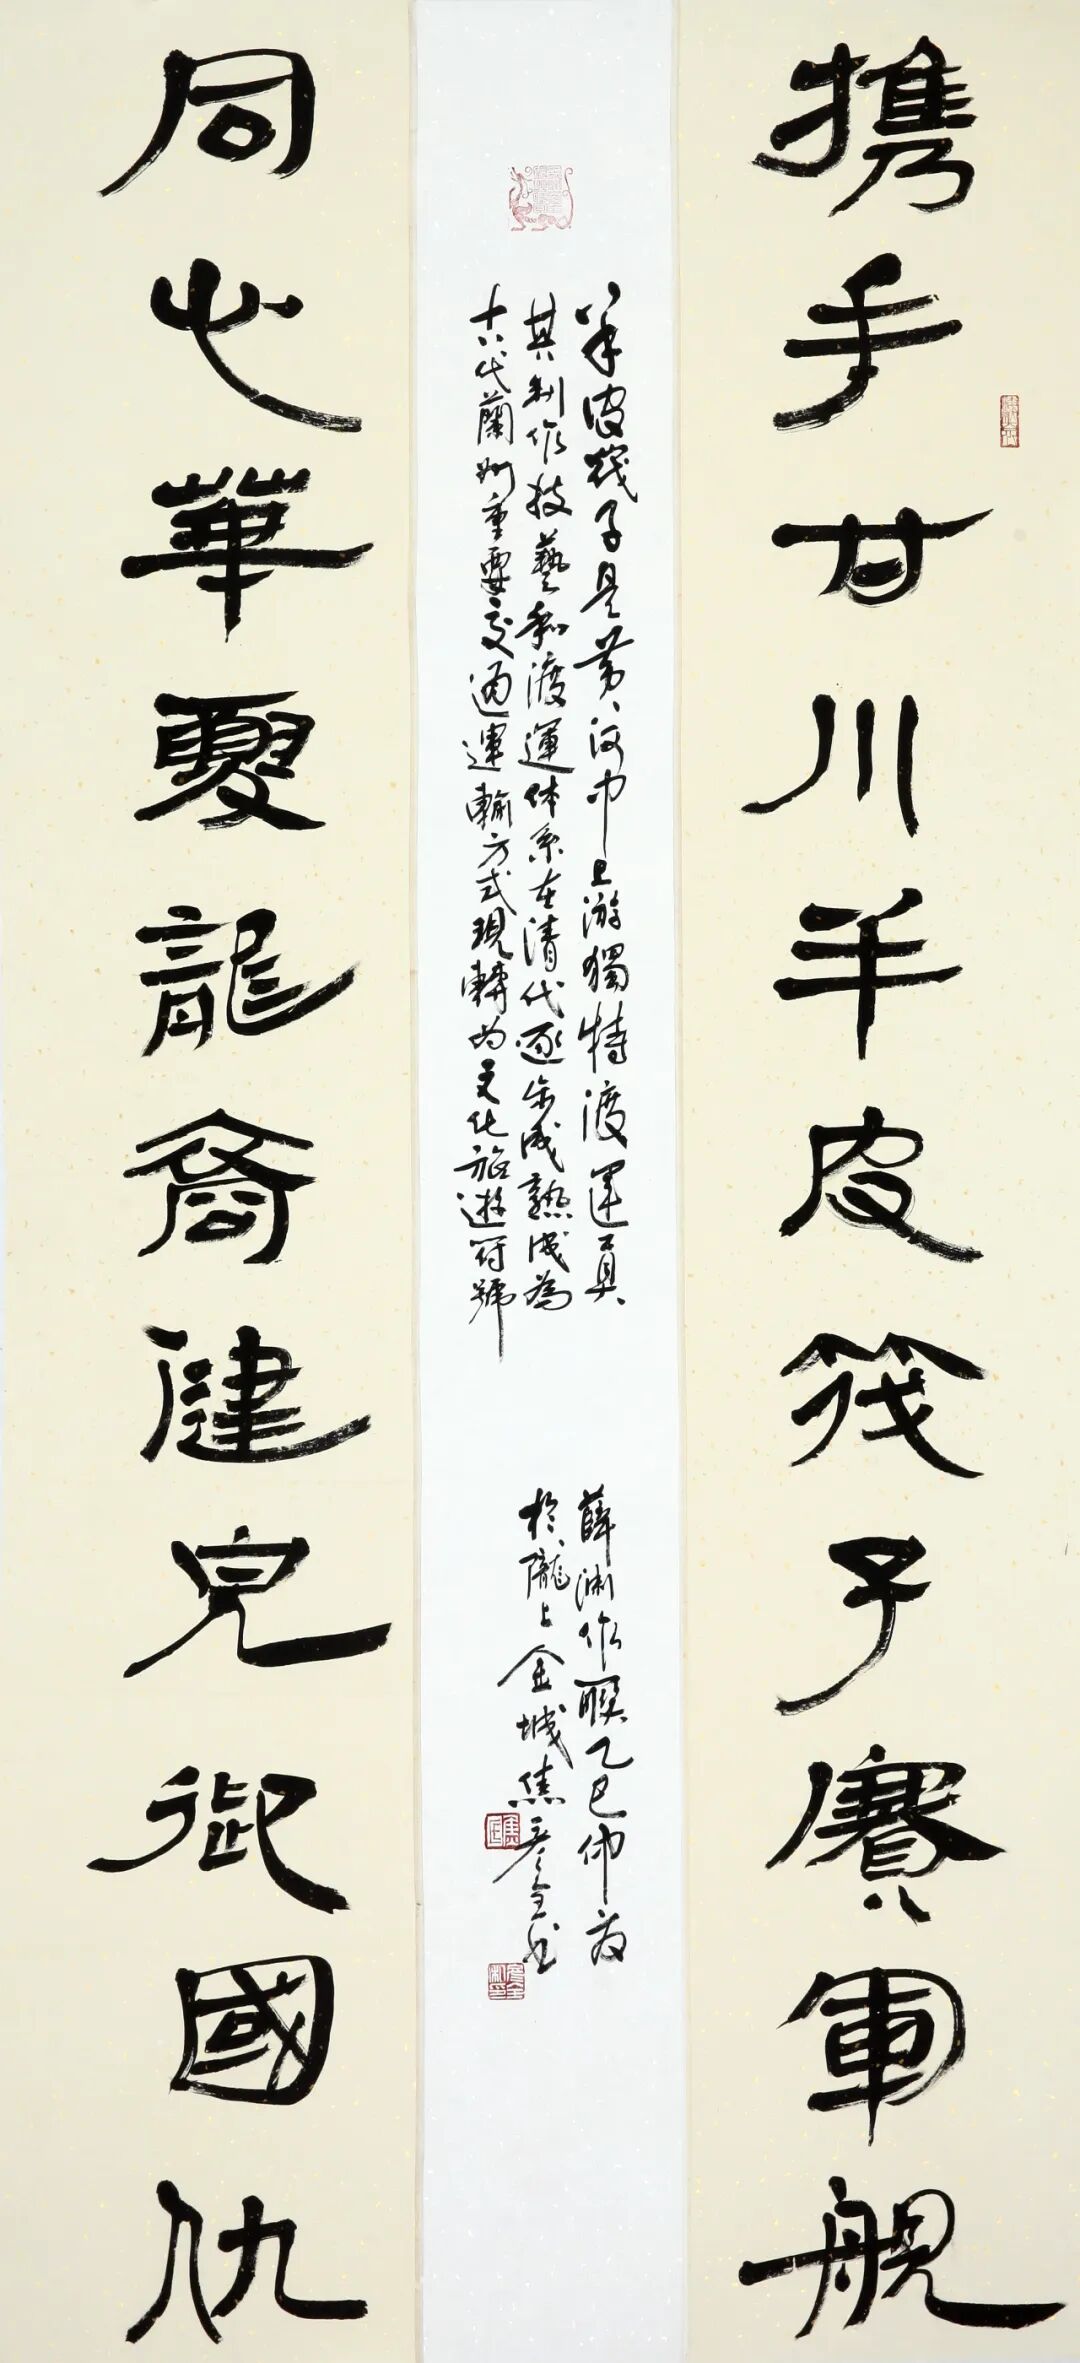 携手甘川羊皮筏子赛軍舰
羊皮筏子是黄河中上游獨特渡運具
其制作技藝和渡運体系在清代逐步成熟成為
十八代蘭州重要交通運輸方式現轉为文化旅遊符號
薛渊作联乙巳仲夏
於隴上金城焦全书
同心華夏龍裔健兒御國仇